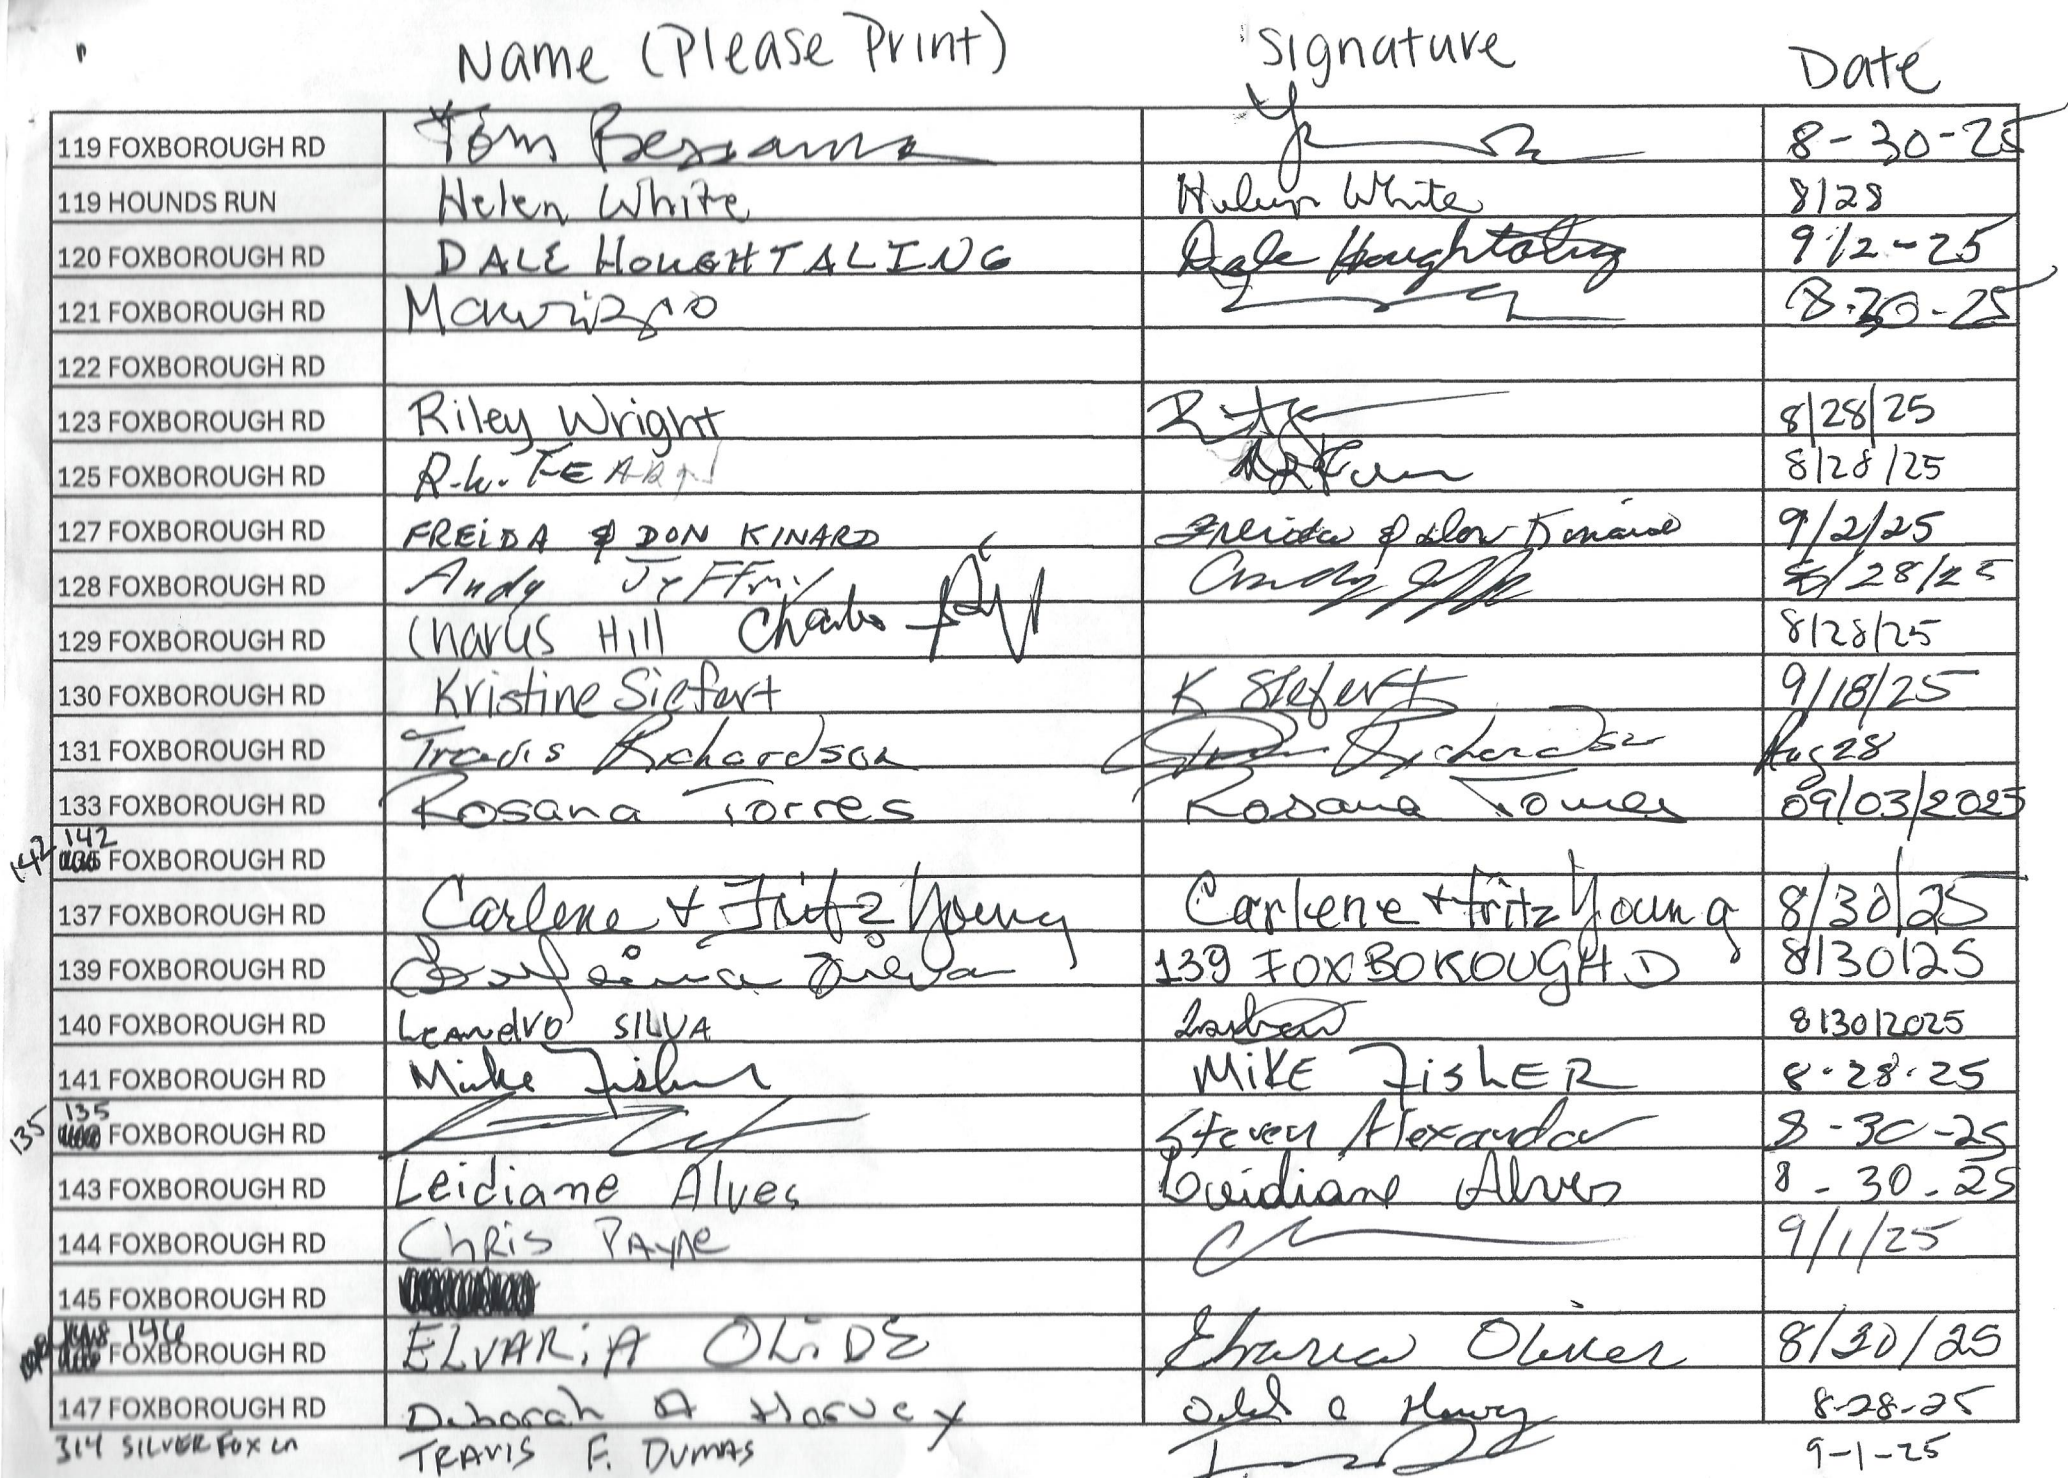 Name (Please Print) Signature Date
119 FOXBOROUGH RD Tom 8-30-25
119 HOUNDS RUN Helen White Helen White 8/28
120 FOXBOROUGH RD DALE HOUGHTALING Dale Houghtaling 9/2-25
121 FOXBOROUGH RD Maurizio 8-30-25
122 FOXBOROUGH RD
123 FOXBOROUGH RD Riley Wright 8/28/25
125 FOXBOROUGH RD R.W. FEARN 8/28/25
127 FOXBOROUGH RD FREIDA & DON KINARD Freida & Don Kinard 9/2/25
128 FOXBOROUGH RD Andy 8/28/25
129 FOXBOROUGH RD Charles Hill Charles 8/28/25
130 FOXBOROUGH RD Kristine Siefert K Siefert 9/18/25
131 FOXBOROUGH RD Travis Richardson Richardson Aug 28
133 FOXBOROUGH RD Rosana Torres Rosana Torres 09/03/2025
142 142 FOXBOROUGH RD
137 FOXBOROUGH RD Carlene + Fritz Young Carlene + Fritz Young 8/30/25
139 FOXBOROUGH RD 139 FOXBOROUGH D 8/30/25
140 FOXBOROUGH RD LEANDRO SILVA 8/30/2025
141 FOXBOROUGH RD Mike Fisher MIKE FISHER 8-28-25
135 135 FOXBOROUGH RD Steven Alexander 8-30-25
143 FOXBOROUGH RD Leidiane Alves Leidiane Alves 8-30-25
144 FOXBOROUGH RD CHRIS PAYNE 9/1/25
145 FOXBOROUGH RD
146 FOXBOROUGH RD ELVARIA 8/30/25
147 FOXBOROUGH RD Deborah A Harvey 8-28-25
314 SILVER FOX LN TRAVIS F. DUMAS 9-1-25